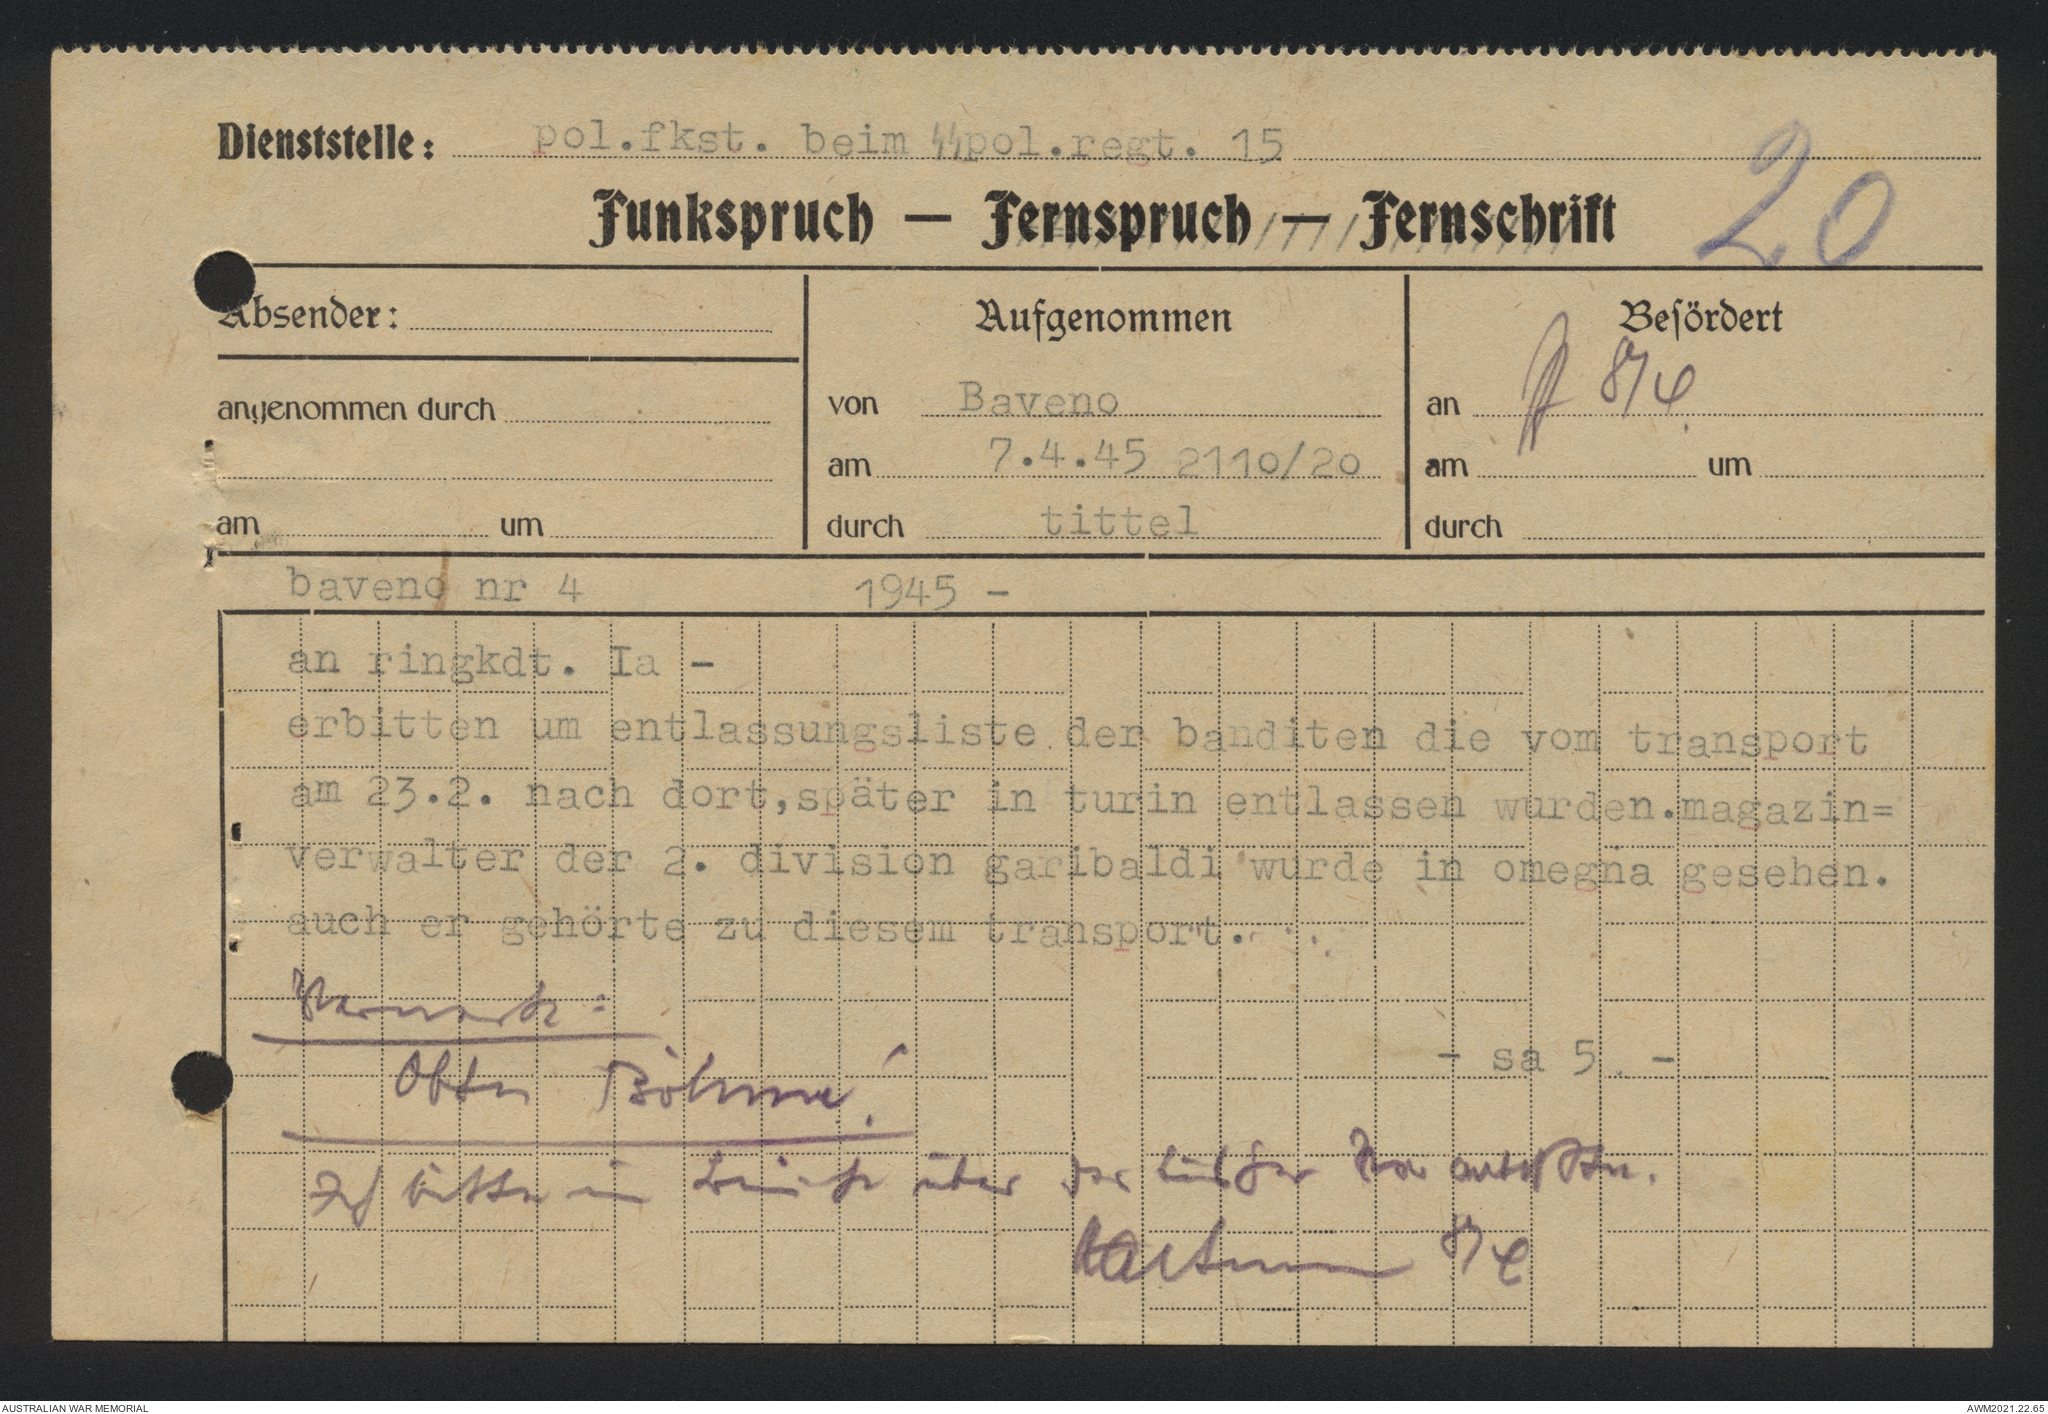 Dienststelle: pol.fkst. beim ᛋᛋpol.regt. 15
20
Funkspruch — Fernspruch — Fernschrift
Absender:
angenommen durch
am um
Aufgenommen
von Baveno
am 7.4.45 2110/20
durch tittel
Befördert
an 8/4.
am um
durch
baveno nr 4 1945 -
an ringkdt. Ia -
erbitten um entlassungsliste der banditen die vom transport
am 23.2. nach dort,später in turin entlassen wurden.magazin=
verwalter der 2. division garibaldi wurde in omegna gesehen.
auch er gehörte zu diesem transport.
Vermerk:
- sa 5. -
Obltn Böhme!
Ich bitte um über der
8/4
AUSTRALIAN WAR MEMORIAL
AWM2021.22.65